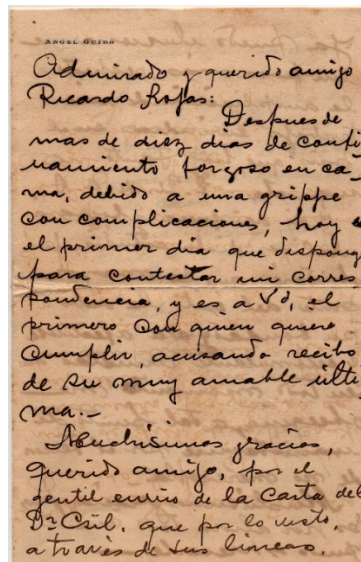 ANGEL GUIDO
Admirado y querido amigo
Ricardo Rojas:
Despues de
mas de diez dias de confi
namiento forzoso en ca_
ma, debido a una grippe
con complicaciones, hoy es
el primer dia que dispongo
para contestar mi corres
pondencia, y es a Vd, el
primero con quien quiero
cumplir, acusando recibo
de su muy amable últi
ma.-
Muchísimas gracias,
querido amigo, por el
gentil envio de la Carta del
Dr. que por lo visto,
a través de sus lineas,